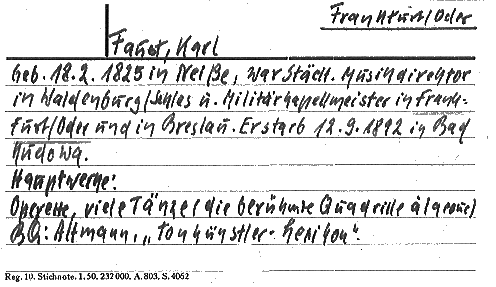 Frankfurt/Oder
Faust, Karl
Geb. 18.2. 1825 in Neiße, war Städt. Musikdirektor
in Waldenburg/Schles u. Militärkapellmeister in Frank-
furt/Oder und in Breslau. Er starb 12.9.1892 in Bad
Kudowa.
Hauptwerke:
Operette, viele Tänze (die berühmte Quadrille à la cour)
BQ: Altmann, „Tonkünstler-Lexikon".
Reg. 10. Stichnote. 1. 50. 232 000. A. 803. S. 4052